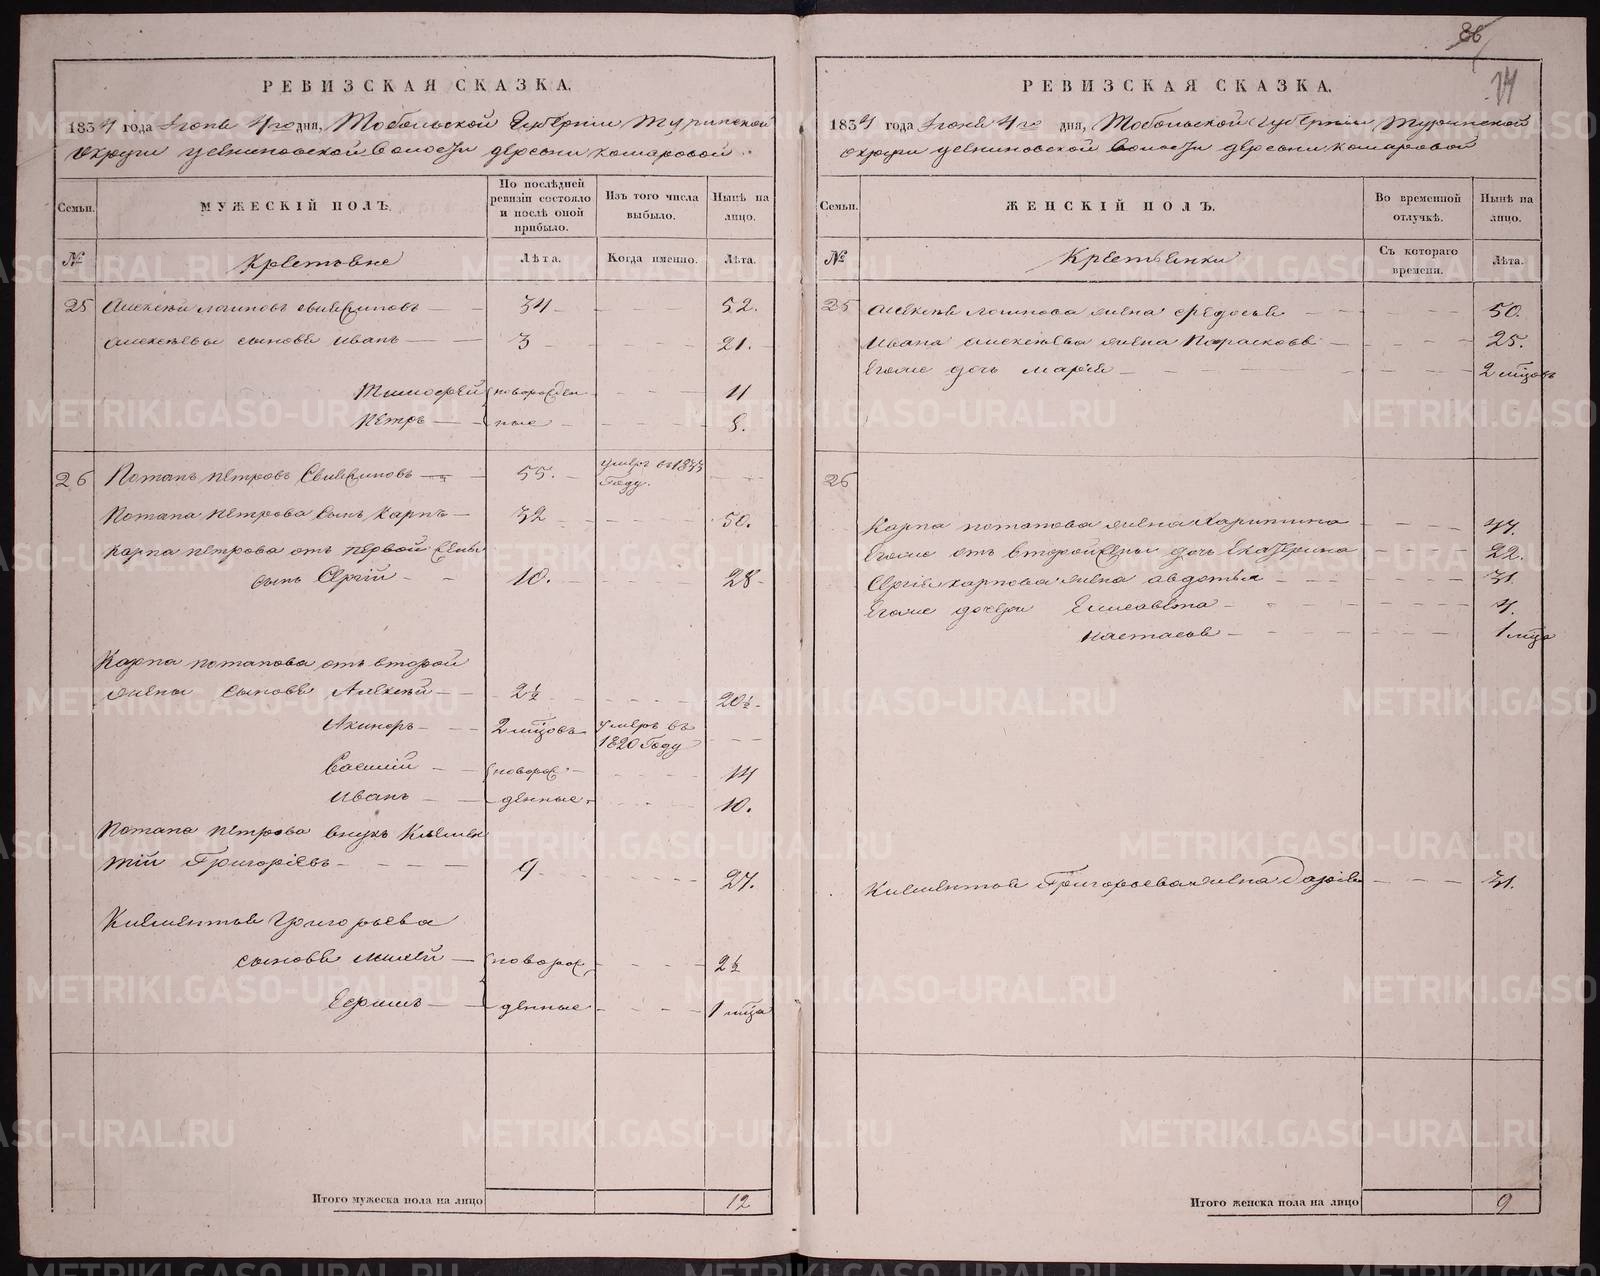 86
14
РЕВИЗСКАЯ СКАЗКА.
1834 года Июня 4го дня, Тобольской Губернiи Туринской
округи волости деревни Комаровой
Семьи.
МУЖЕСКIЙ ПОЛЪ.
По послѣдней ревизiи состояло и послѣ оной прибыло.
Изъ того числа выбыло.
Нынѣ на лицо.
№
Крестьяне
Лѣта.
Когда именно.
Лѣта.
25 Алексей Логиновъ 34 52.
Алексѣевы сыновье Иванъ 3 21.
Тимофей новорожден 11
Петръ ные 8.
26 Потапъ Петровъ 55. умеръ въ 1833 Году.
Потапа Петрова сынъ Карпъ 32 50.
Карпа Петрова отъ первой жены
сынъ Сергiй 10. 28
Карпа Потапова отъ второй
жены сыновье Алексей 2½ 20½
2 мѣцовъ умеръ въ 1820 Году
Василiй новорож 14
Иванъ денные 10.
Потапа Петрова внукъ Клемен
тiй Григорiевъ 9 27.
Клементья Григорьева
сыновье новорож 2½
Ефимъ денные 1 мѣца
Итого мужеска пола на лицо 12
РЕВИЗСКАЯ СКАЗКА.
1834 года Июня 4го дня, Тобольской Губернiи Туринской
округи волости деревни Комаровой
Семьи.
ЖЕНСКIЙ ПОЛЪ.
Во временной отлучкѣ.
Нынѣ на лицо.
№
Крестьянки
Съ котораго времени.
Лѣта.
25 Алексея Логинова жена Федосья 50.
Ивана Алексѣева жена Парасковья 25.
Егоже дочь Марiя 2 мѣцовъ
26
Карпа Потапова жена Харитина 44.
Егоже от второй жены дочь Екатерина 22.
Сергiя Карпова жена Авдотья 31.
Егоже дочери Елисавета 4.
Настасья 1 мѣца
Клементья Григорьева жена 31.
Итого женска пола на лицо 9
METRIKI.GASO-URAL.RU